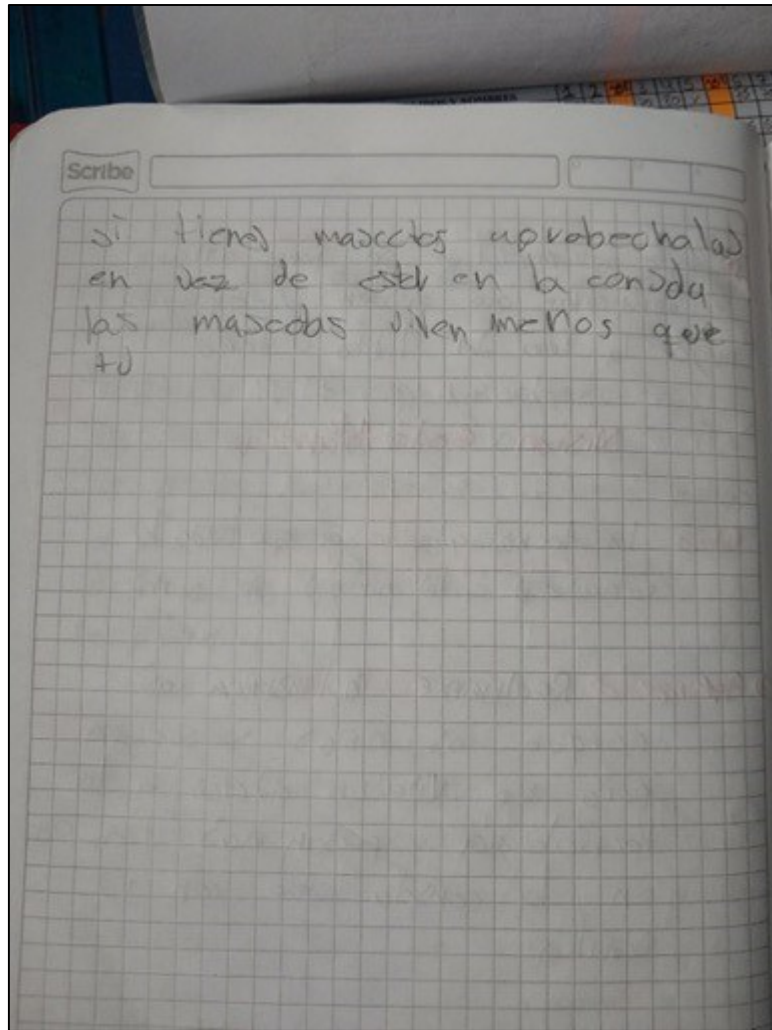 Scribe
si tienes mascotas aprobechalas
en vez de estar en la consola
las mascotas viven menos que
tu